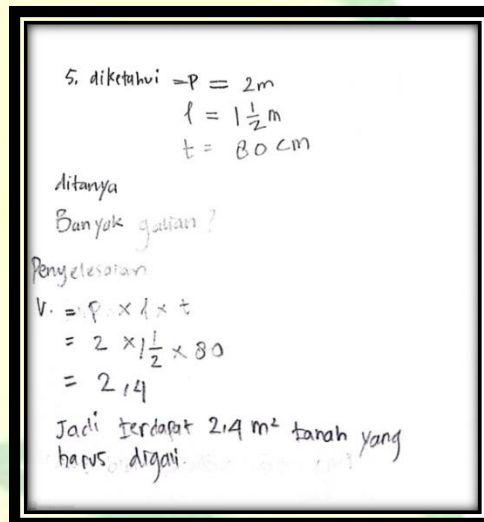 5. diketahui = P = 2m
l = 1 1/2 m
t = 80 cm
ditanya
Banyak galian?
Penyelesaian
V. = P × l × t
= 2 × 1 1/2 × 80
= 2,4
Jadi terdapat 2,4 m² tanah yang
harus digali.